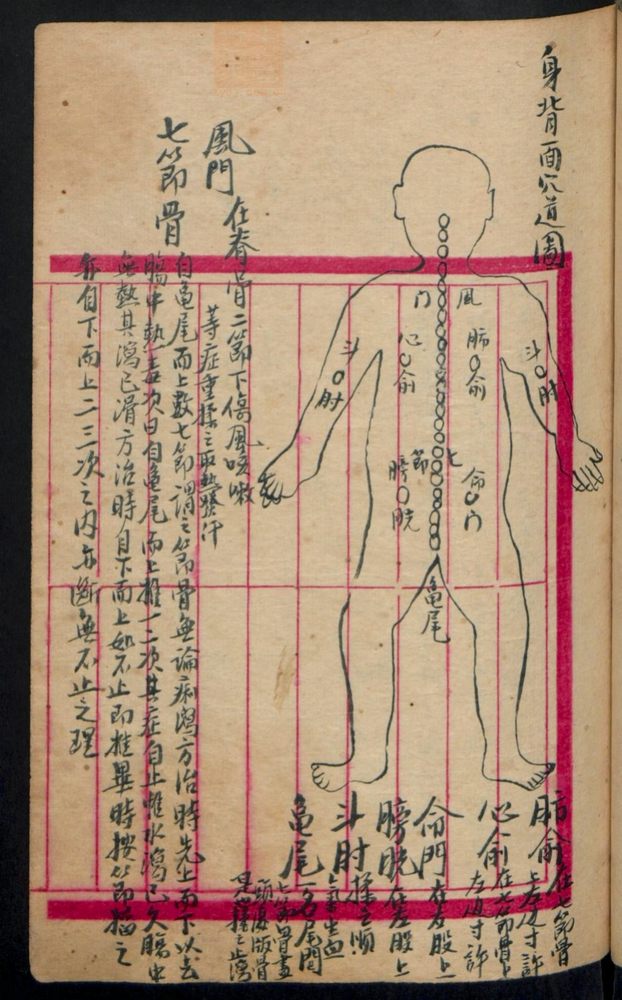 身背面穴道圖
風門
肺俞
心俞
斗肘
斗肘
七節
命門
膀胱
龜尾
肺俞 在七節骨
上右邊寸許
心俞 在七節骨上
左邊寸許
命門 在右股上
膀胱 在左股上
斗肘 揉之順
氣生血
龜尾 一名尾閭
七節骨盡
頭後版骨
是也揉之止瀉
風門 在脊骨二節下傷風咳嗽
等症重揉之取熱發汗
七節骨 自龜尾而上數七節謂之節骨無論痢瀉方治時先上而下以去
腸中熱毒次日自龜尾而上推一二次其症自止惟水瀉已久腸中
無熱其瀉已滑方治時自下而上如不止即推畢時按節搯之
亦自下而上二三次之內亦斷無不止之理